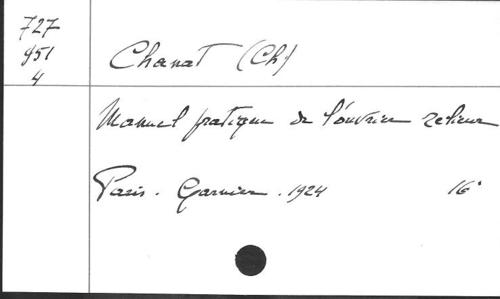 727
951
4
Chanat (Ch.)
Manuel pratique de l'ouvrier relieur
Paris. Garnier. 1924 16°